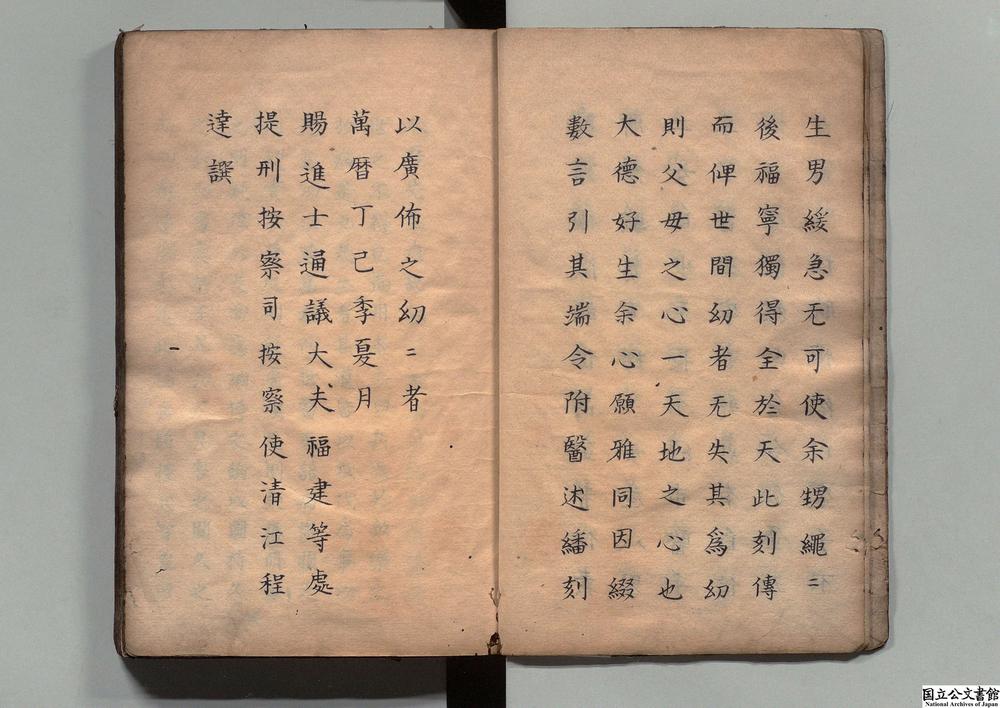 生男緩急无可使余甥繩〻
後福寧獨得全於天此刻傳
而俾世間幼者无失其為幼
則父母之心一天地之心也
大德好生余心願雅同因綴
數言引其端令附醫述繙刻
以廣佈之幼〻者
萬曆丁己季夏月
賜進士通議大夫福建等處
提刑按察司按察使清江程
達譔
国立公文書館
National Archives of Japan